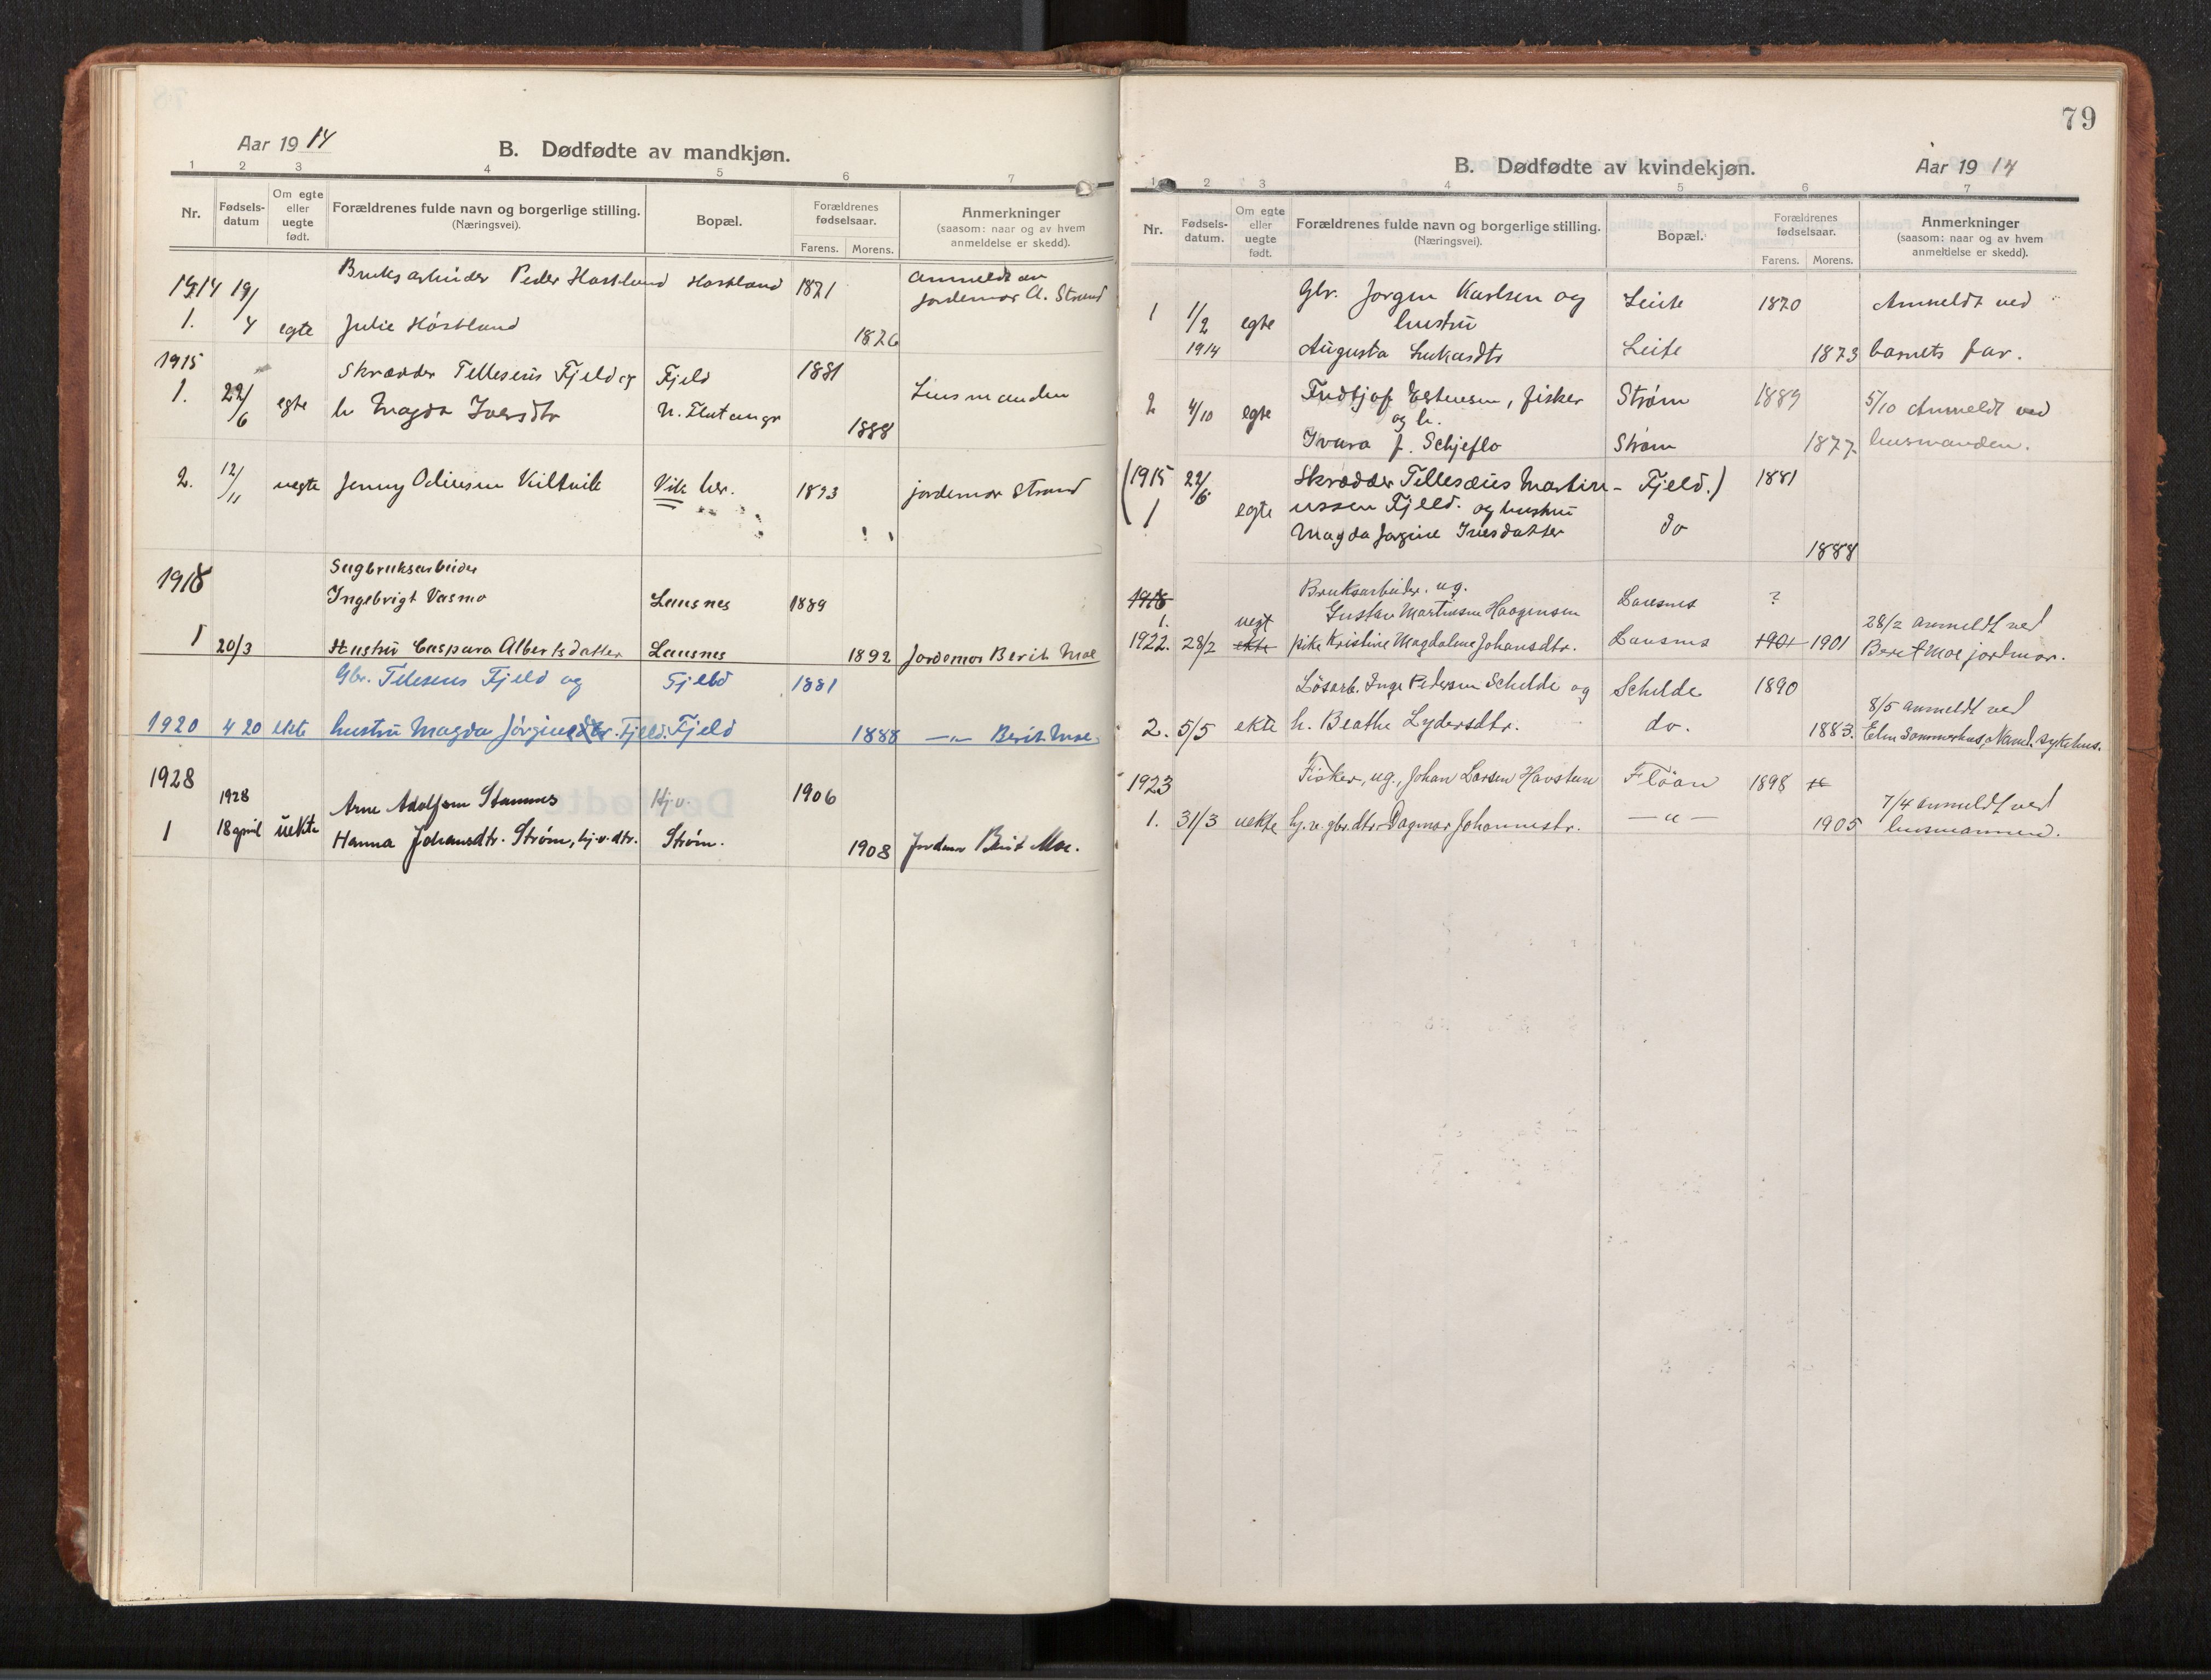 Aar 1914
B. Dødfødte av mandkjøn.
1 2 3 4 5 6 7
Nr. Fødsels-datum Om egte eller uegte født. Forældrenes fulde navn og borgerlige stilling. (Næringsvei). Bopæl. Forældrenes fødselsaar. Farens. Morens. Anmerkninger (saasom: naar og av hvem anmeldelse er skedd).
1914 19/4 Bruksarbeider Peder Hastlund Hastland 1871 Anmeldt av jordemor A. Strand
1. egte Julie Høstland 1876
1915
1. 22/6 egte Skrædder Telleseus Fjeld og Fjeld 1881 Lensmanden
h Magda Iversdtr N. Flatangr 1888
2. 12/11 uegte Jenny Odinsen Vik 1893 jordemor Strand
1918 Sagbruksarbeider
Ingebrigt Vasmo Lausnes 1889
1 20/3 Hustru Caspara Albertsdatter Lausnes 1892 Jordemor Berit Moe
Gbr. Teleseus Fjeld og Fjeld 1881
1920 4 20 ekte hustru Magda Jørgine Fjeld. Fjeld 1888 —"— Berit Moe.
1928
1928 Arne Adolfsen Stamnes Hj.v. 1906
1 18 april uekte Hanna Johansdtr. Strøm, hj.v. dtr. Strøm. 1908 Jordmor Berit Moe.
79
B. Dødfødte av kvindekjøn.
Aar 1914
1 2 3 4 5 6 7
Nr. Fødsels-datum. Om egte eller uegte født. Forældrenes fulde navn og borgerlige stilling. (Næringsvei). Bopæl. Forældrenes fødselsaar. Farens. Morens. Anmerkninger (saasom: naar og av hvem anmeldelse er skedd).
1 1/2 egte Gbr. Jørgen Karlsen og Leite 1870 Anmeldt ved
hustru
1914 Augusta Lukasdtr Leite 1873 barnets far.
2 4/10 egte Fridtjof Estensen, fisker Strøm 1889 5/10 Anmeldt ved
og h.
Ivara f. Schjeflo Strøm 1877 lensmanden.
(1915 22/6 Skrædder Tellesæus Martin- Fjeld.) 1881
1 egte ussen Fjeld. og hustru
Magda Jørgine Iversdatter do 1888
1918 Bruksarbeider, ug.
1. uegt Gustav Martinsen Haagensen Lausnes ? 28/2 anmeldt ved
1922. 28/2 ekte pike Kristine Magdalene Johansdtr. Lausnes 1901 1901 Beret Moe jordmor.
Løsarb. Inge Pedersen Schelde og Schelde 1890 8/5 anmeldt ved
2. 5/5 ekte h. Beathe Lydersdtr. do. 1883. Elen Sommerhus, Namd. sykehus.
1923 Fisker, ug., Johan Larsen Havsteen Fløan 1898
7/4 anmeldt ved
1. 31/3 uekte hj.v. gbr.dtr. Dagmar Johannestr. —"— 1905 lensmannen.